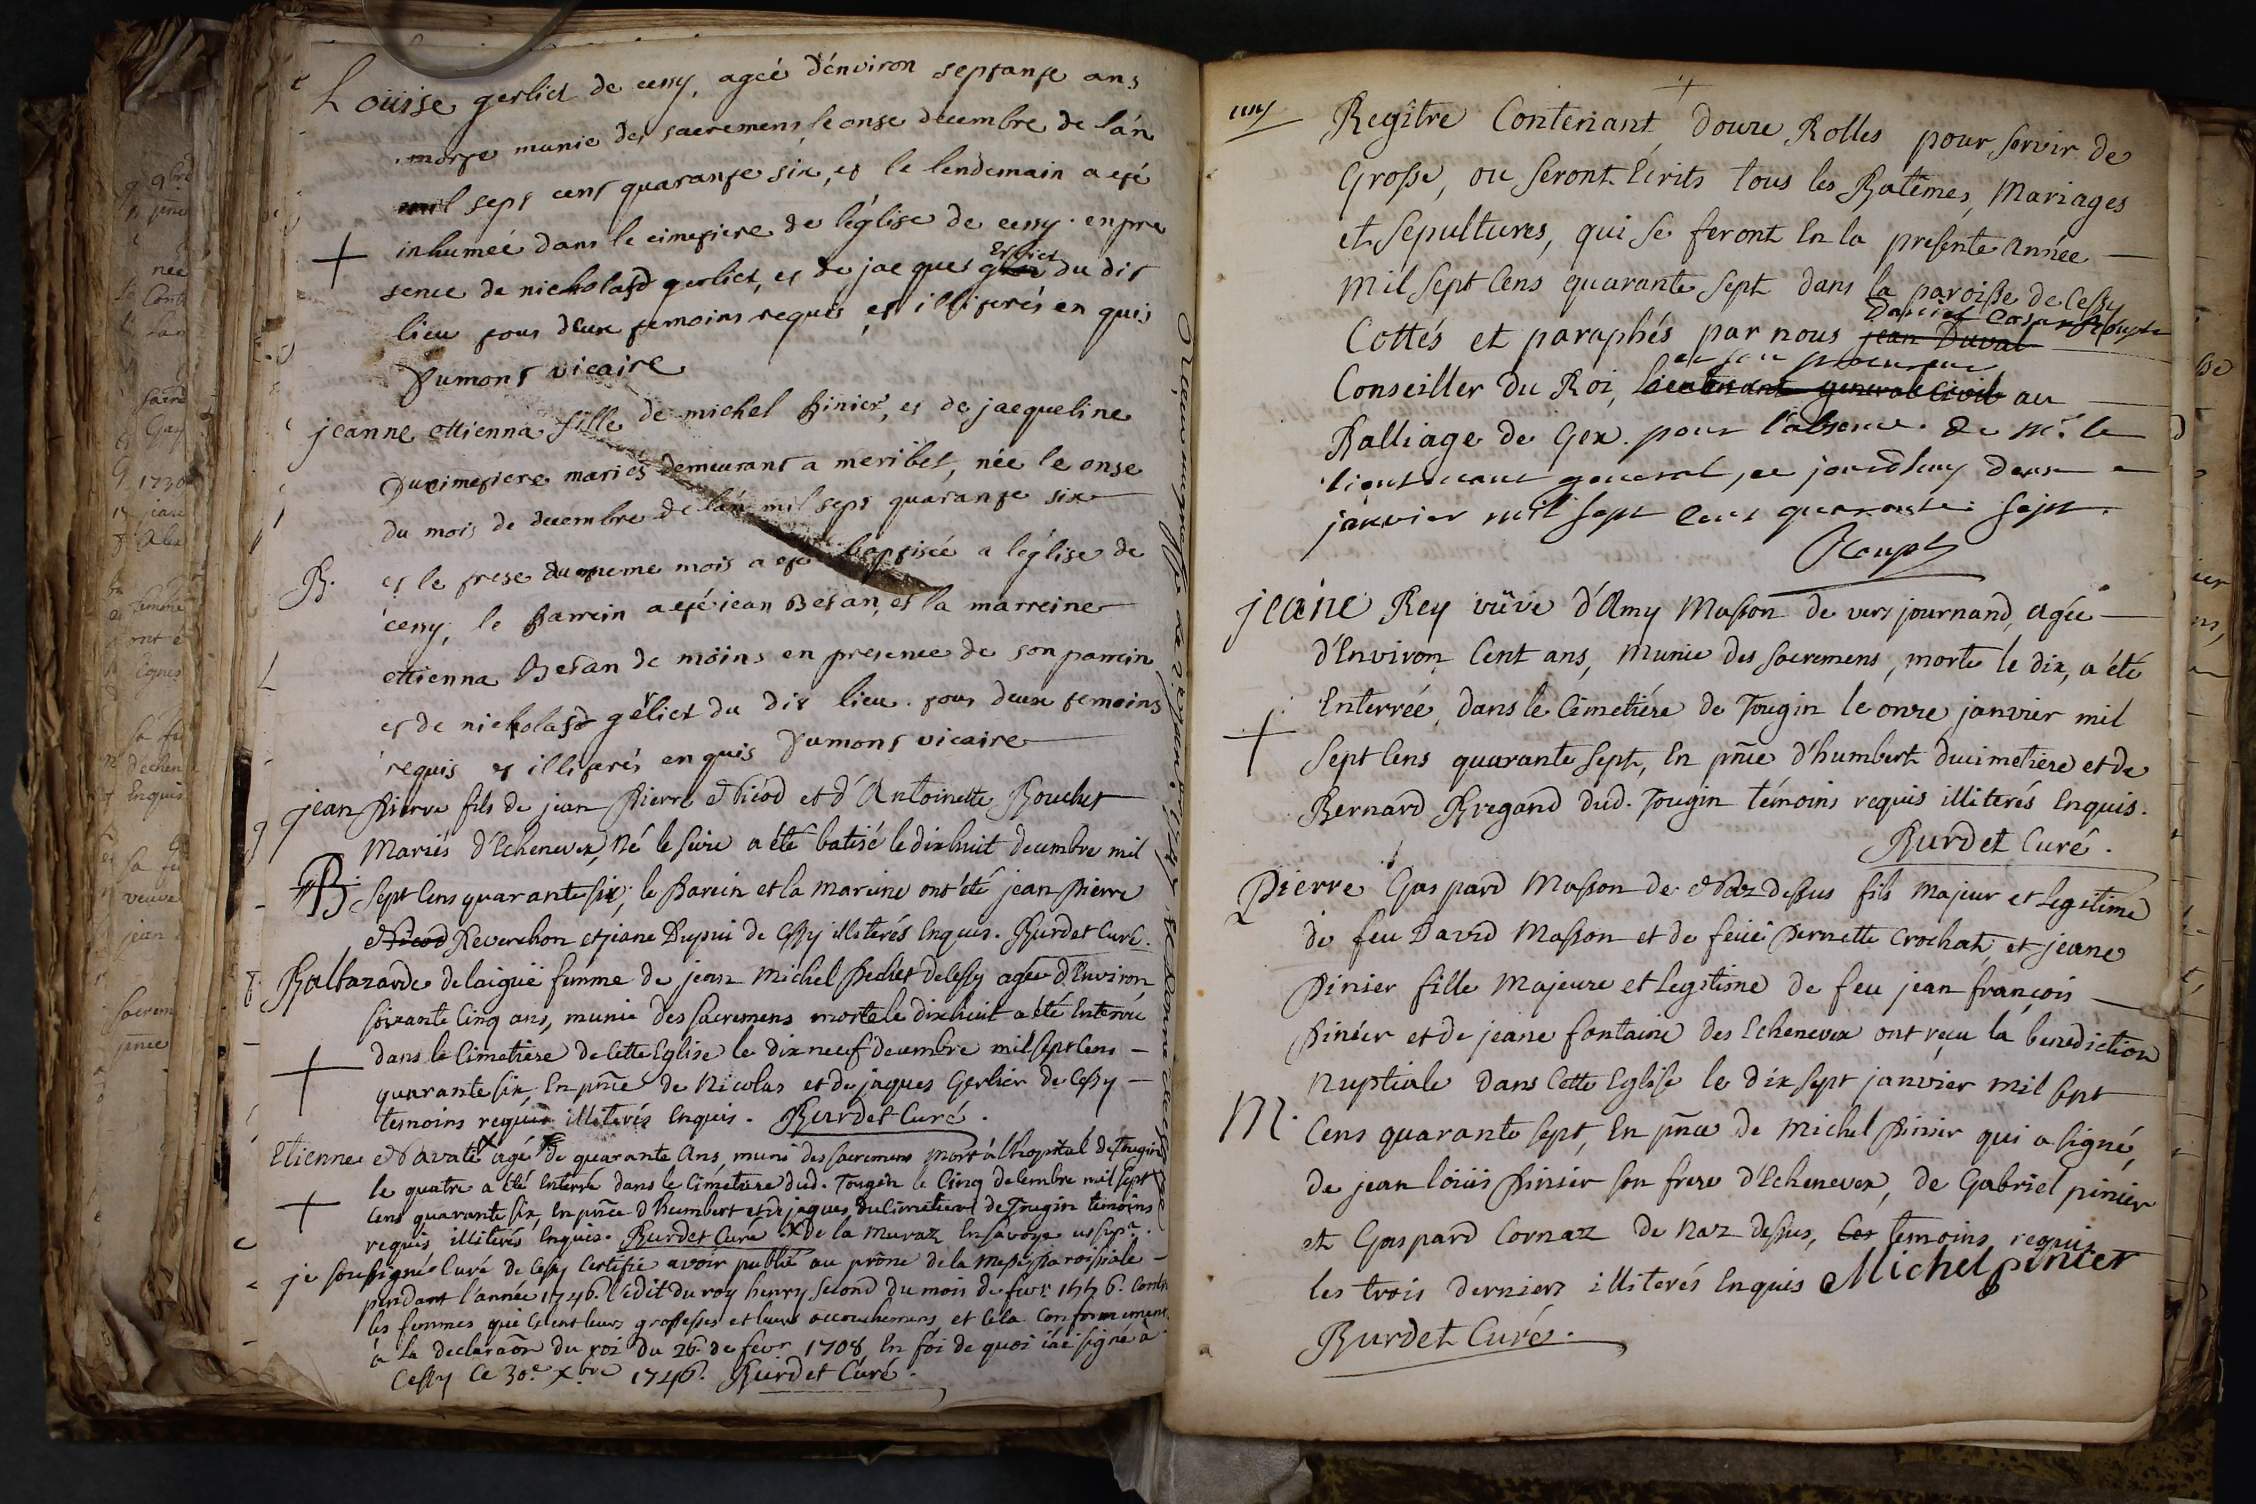 Louise gerlict de cessy, ageé d'environ septante ans
morte munie des sacremens, le onse decembre de l'an
mil sept cent quarante six, et le lendemain a eté
inhumeé dans le cimetiere de l'église de cessy. en pre
sence de nicholasd gerlict, et de jacques gerlict du dit
lieu tous deux temoins requis et illiterés en quis
Dumont vicaire
jeanne ettienna fille de michel pinier, et de jacqueline
Ducimetiere mariés demeurant a meribel, née le onse
du mois de decembre de l'an mil sept quarante six
B. et le trese du meme mois a eté baptiseé a l'église de
cessy; le parrein a eté jean Betan, et la marreine
ettienna Betan de moins en presence de son parrein
et de nicholasd gerlict du dit lieu. tous deux temoins
requis et illiterés enquis Dumont vicaire
jean pierre fils de jean pierre Nicod et d'Antoinette Bouchet
Mariés d'Echenevex, Né le seize a été batisé le dixhuit decembre mil
B. sept Cens quarante six; le Parein et la Mareine ont été jean pierre
Nicod Reverchon et jeane Dupui de Cessy illiterés Enquis. Burdet Curé.
Baltazarde delaigüe femme de jean Michel Pechet de Cessy agée d'Environ
soixante Cinq ans, munie des sacremens morte le dixhuit a été Enterrée
dans le Cimetiere de Cette Eglise le dixneuf decembre mil sept Cens
quarante six, En pñce de Nicolas et de jaques Gerlier de Cessy
temoins requis illiterés Enquis. Burdet Curé.
Etienne Navate x agé de quarante Ans, muni des sacremens Mort à l'hopital de Tougin
le quatre a été Enterré dans le Cimetiere dud. Tougin le Cinq decembre mil sept
Cens quarante six, En pñce d'humbert et de jaques du Cimetiere de Tougin temoins
requis illiterés Enquis. Burdet Curé x de la Muraz En savoye
je soussigné Curé de Cessy Certifie avoir publié au prône de la Messe Paroissiale
pendant l'année 1746. l'edit du roy henry second du mois de fevr 1556. Contre
les femmes qui Celent leurs grossesses et leurs accouchemens, et Cela Conformement
à la declaraõn du roi du 26 de fevr 1708, En foi de quoi j'ai signé à
Cessy Ce 30e xbre 1746. Burdet Curé.
Cessy
Regître Contenant douze Rolles pour servir de
Grosse, ou seront Ecrits tous les Batêmes, Mariages
et sepultures, qui se feront En la presente Année
mil sept Cens quarante sept dans la paroisse de Cessy
Cottés et paraphés par nous jean Duval
Conseiller du Roi, lieutenant general Civil au
Balliage de Gex. pour l'absence de Mr. le
lieutenant general, ce jourdhuy deux
janvier mil sept cent quarante sept.
jeane Rey vüve d'Amy Masson de vers journand, agée
d'Environ Cent ans, Munie des sacremens, morte le dix, a été
Enterrée dans le Cimetiére de Tougin le onze janvier mil
sept Cens quarante sept, En pñce d'humbert ducimetiere et de
Bernard Bregand dud. Tougin témoins requis illiterés Enquis.
Burdet Curé.
Pierre Gaspard Masson de Naz dessus fils Majeur et Legitime
de feu David Masson et de feüe Pernette Crochat, et jeane
Pinier fille Majeure et Legitime de feu jean françois
Pinier et de jeane fontaine des Echenevex ont reçu la benediction
Nuptiale dans Cette Eglise le dix sept janvier mil sept
M. Cens quarante sept, En pñce de Michel Pinier qui a signé,
de jean loüis Pinier son frere d'Echenevex, de Gabriel pinier
et Gaspard Cornaz de Naz dessus, Ces temoins requis
les trois derniers illiterés Enquis Michel pinier
Burdet Curé.